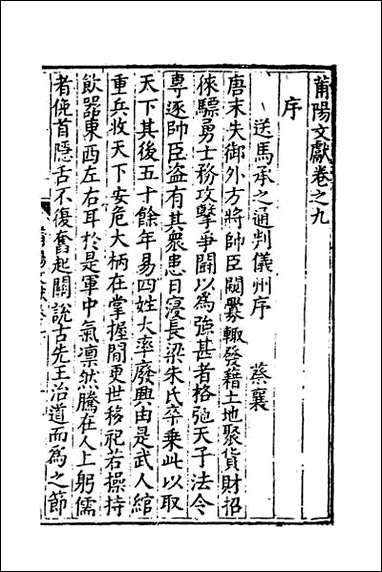 莆陽文獻卷之九
序
送馬承之通判儀州序 蔡襄
唐末失御外方將帥臣閱釁輙發籍土地聚貨財招
徠驃勇士務攻擊爭鬪以為強甚者格弛天子法令
專逐帥臣盗有其衆患日寖長梁朱氏卒乗此以取
天下其後五十餘年易四姓大率廢興由是武人綰
重兵攻天下安危大柄在掌握間更世移祀若操持
飲器東西左右耳於是軍中氣凛然騰在人上躬儒
者俛首隱舌不復奮起關說古先王治道而為之節